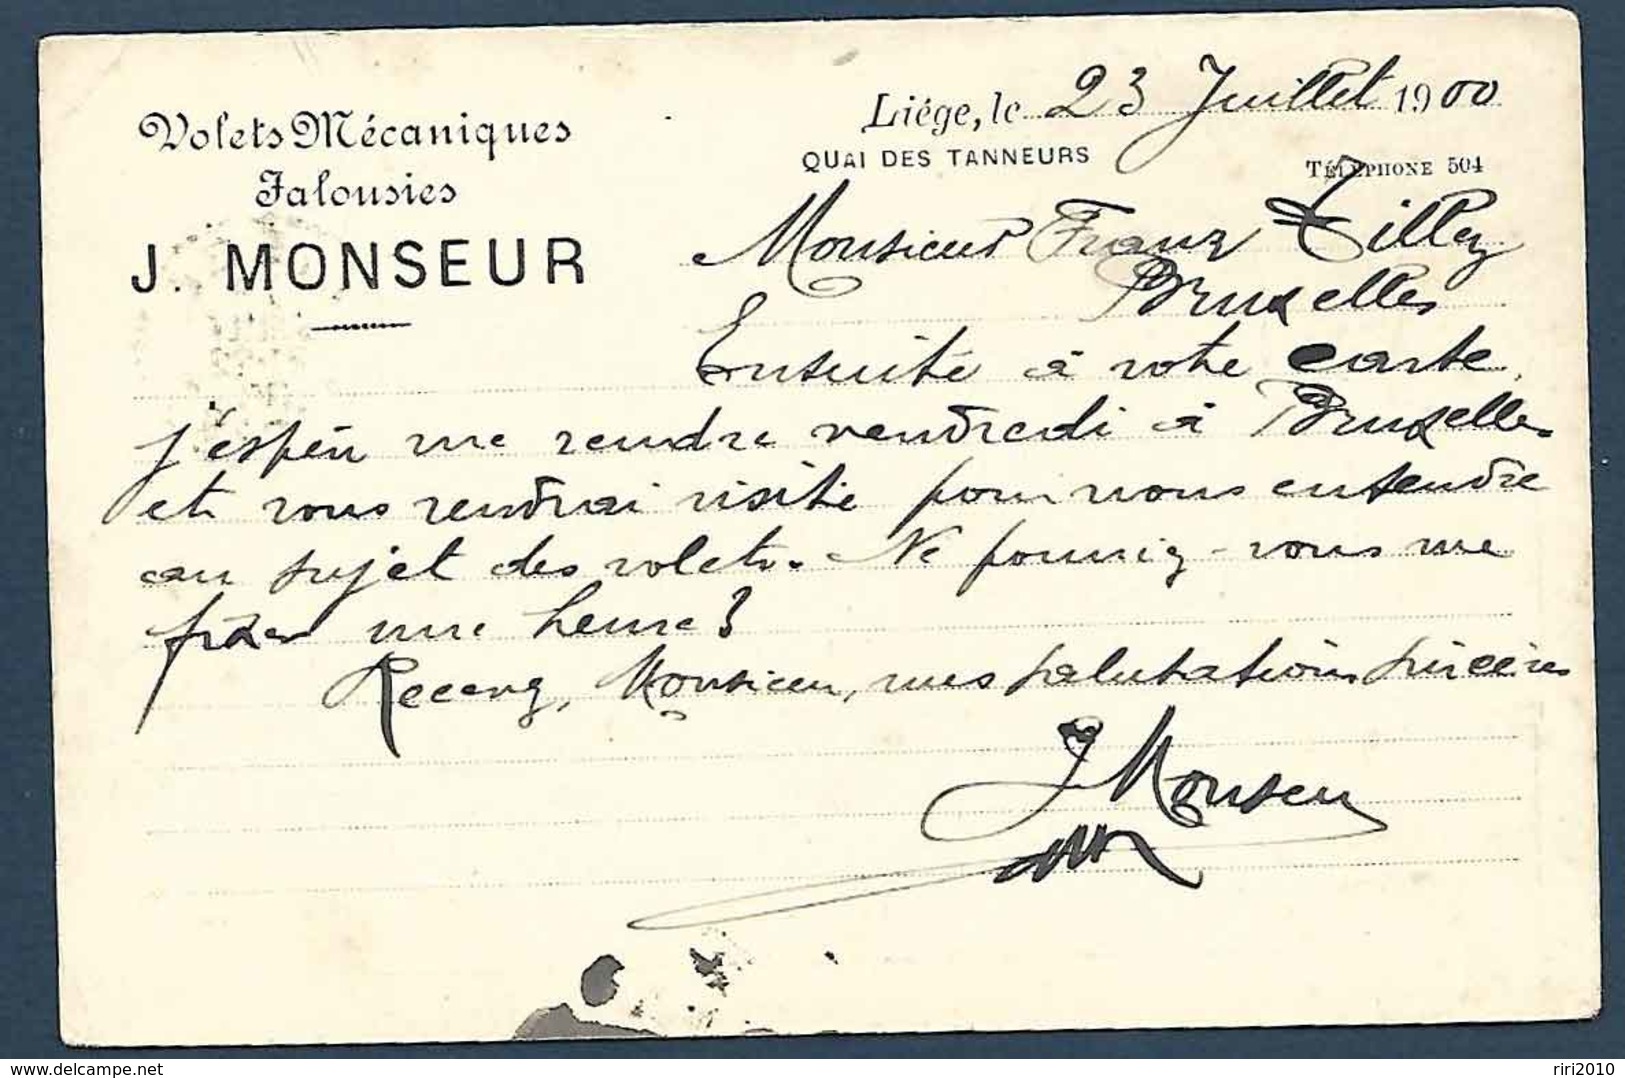 Volets Mécaniques
Jalousies
J. MONSEUR
Liége, le 23 Juillet 1900
QUAI DES TANNEURS
TÉLÉPHONE 504
Monsieur Franz Tilley
Bruxelles
Ensuite à votre carte
j'espère me rendre vendredi à Bruxelles
et vous rendrai visite pour nous entendre
au sujet des volets. Ne pourriez-vous me
fixer une heure?
Recevez, Monsieur, mes salutations sincères
J Monseur
delcampe.net
riri2010